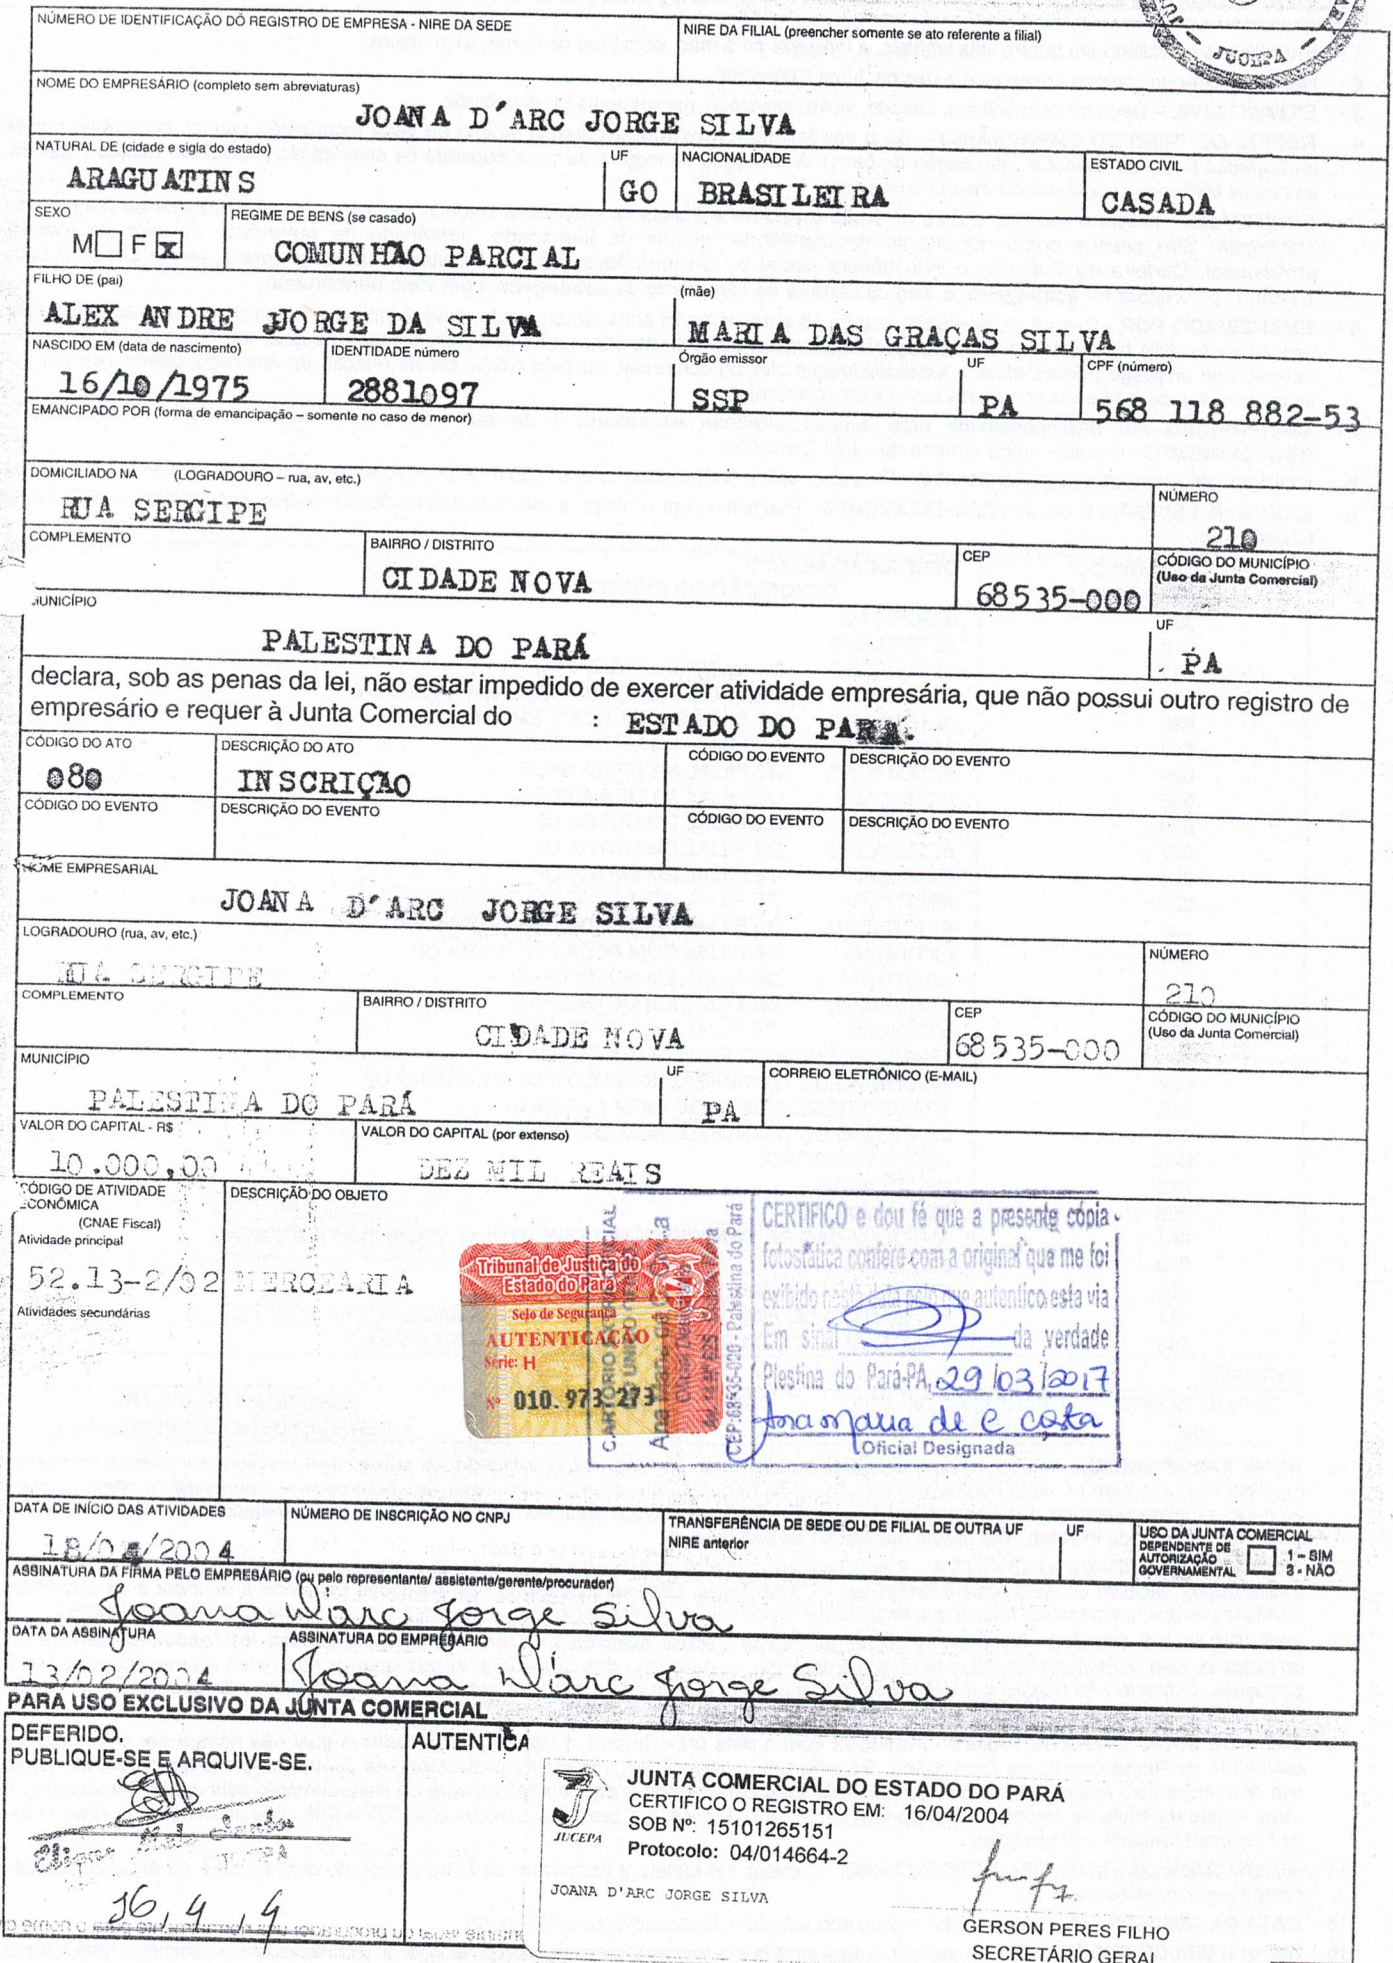 JUCEPA
NÚMERO DE IDENTIFICAÇÃO DO REGISTRO DE EMPRESA - NIRE DA SEDE
NIRE DA FILIAL (preencher somente se ato referente a filial)
NOME DO EMPRESÁRIO (completo sem abreviaturas)
JOANA D'ARC JORGE SILVA
NATURAL DE (cidade e sigla do estado) UF NACIONALIDADE ESTADO CIVIL
ARAGUATINS GO BRASILEIRA CASADA
SEXO REGIME DE BENS (se casado)
M F X COMUNHÃO PARCIAL
FILHO DE (pai) (mãe)
ALEXANDRE JORGE DA SILVA MARIA DAS GRAÇAS SILVA
NASCIDO EM (data de nascimento) IDENTIDADE número Órgão emissor UF CPF (número)
16/10/1975 2881097 SSP PA 568 118 882-53
EMANCIPADO POR (forma de emancipação – somente no caso de menor)
DOMICILIADO NA (LOGRADOURO – rua, av, etc.) NÚMERO
RUA SERGIPE 210
COMPLEMENTO BAIRRO / DISTRITO CEP CÓDIGO DO MUNICÍPIO
(Uso da Junta Comercial)
CIDADE NOVA 68535-000
MUNICÍPIO UF
PALESTINA DO PARÁ PA
declara, sob as penas da lei, não estar impedido de exercer atividade empresária, que não possui outro registro de
empresário e requer à Junta Comercial do : ESTADO DO PARÁ.
CÓDIGO DO ATO DESCRIÇÃO DO ATO CÓDIGO DO EVENTO DESCRIÇÃO DO EVENTO
080 INSCRIÇÃO
CÓDIGO DO EVENTO DESCRIÇÃO DO EVENTO CÓDIGO DO EVENTO DESCRIÇÃO DO EVENTO
NOME EMPRESARIAL
JOANA D'ARC JORGE SILVA
LOGRADOURO (rua, av, etc.) NÚMERO
RUA SERGIPE 210
COMPLEMENTO BAIRRO / DISTRITO CEP CÓDIGO DO MUNICÍPIO
(Uso da Junta Comercial)
CIDADE NOVA 68535-000
MUNICÍPIO UF CORREIO ELETRÔNICO (E-MAIL)
PALESTINA DO PARÁ PA
VALOR DO CAPITAL - R$ VALOR DO CAPITAL (por extenso)
10.000,00 DEZ MIL REAIS
CÓDIGO DE ATIVIDADE ECONÔMICA
(CNAE Fiscal)
DESCRIÇÃO DO OBJETO
Atividade principal
52.13-2/02 MERCEARIA
Atividades secundárias
Tribunal de Justiça do
Estado do Pará
Selo de Segurança
AUTENTICAÇÃO
Série: H
Nº 010.973.273
CEP:68535-020 - Palestina do Pará
CERTIFICO e dou fé que a presente cópia
fotostática confere com a original que me foi
exibido nesta data pelo que autentico esta via
Em sinal da verdade
Plestina do Pará-PA, 29/03/2017
Ana maria de C costa
Oficial Designada
DATA DE INÍCIO DAS ATIVIDADES NÚMERO DE INSCRIÇÃO NO CNPJ TRANSFERÊNCIA DE SEDE OU DE FILIAL DE OUTRA UF UF
NIRE anterior
USO DA JUNTA COMERCIAL
DEPENDENTE DE
AUTORIZAÇÃO
GOVERNAMENTAL
1 - SIM
3 - NÃO
ASSINATURA DA FIRMA PELO EMPRESÁRIO (ou pelo representante/ assistente/gerente/procurador)
Joana Darc Jorge Silva
DATA DA ASSINATURA ASSINATURA DO EMPRESÁRIO
13/02/2004 Joana Darc Jorge Silva
PARA USO EXCLUSIVO DA JUNTA COMERCIAL
DEFERIDO.
PUBLIQUE-SE E ARQUIVE-SE.
16, 4, 4
AUTENTICA
JUCEPA
JUNTA COMERCIAL DO ESTADO DO PARÁ
CERTIFICO O REGISTRO EM: 16/04/2004
SOB Nº: 15101265151
Protocolo: 04/014664-2
JOANA D'ARC JORGE SILVA
GERSON PERES FILHO
SECRETÁRIO GERAL